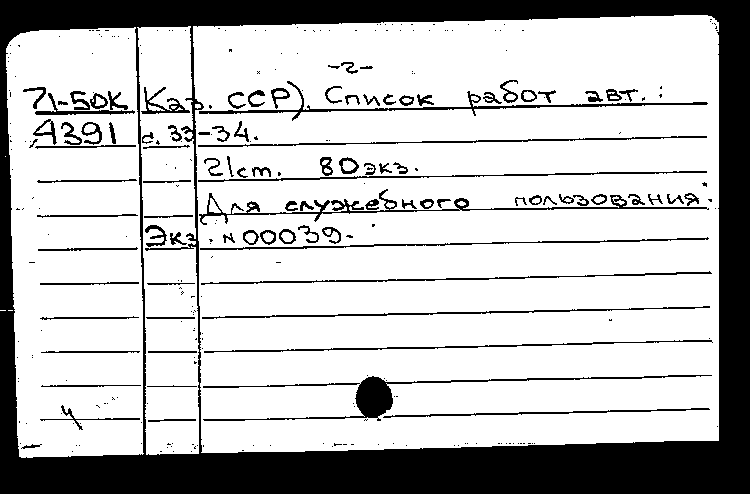 -2-
71-50K Каз. ССР). Список работ авт.:
A391 с. 33-34.
21cm. 80экз.
Для служебного пользования.
Экз. N 00039.
4